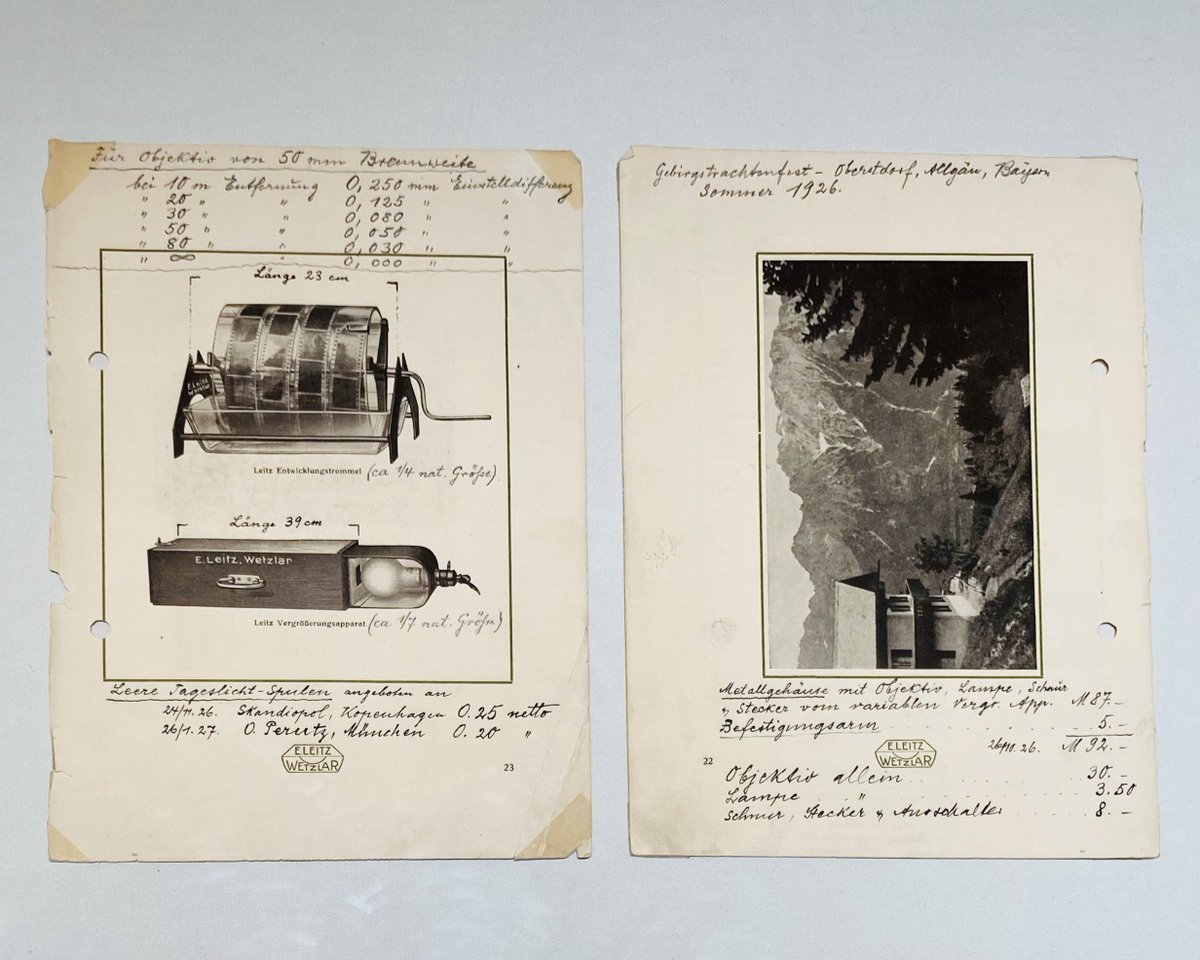 Für Objektiv von 50 mm Brennweite
bei 10 m Entfernung 0,250 mm Einstelldifferenz
" 20 " " 0,125 " "
" 30 " " 0,080 " "
" 50 " " 0,050 " "
" 80 " " 0,030 " "
" ∞ 0,000 " "
Länge 23 cm
E.Leitz
Wetzlar
Leitz Entwicklungstrommel (ca 1/4 nat. Größe)
Länge 39 cm
E.Leitz, Wetzlar
Leitz Vergrößerungsapparat (ca 1/7 nat. Größe)
Leere Tageslicht-Spulen angeboten an
24/11.26. Skandiopol, Kopenhagen 0.25 netto
26/1.27. O. Perutz, München 0.20 "
E.LEITZ
WETZLAR
23
Gebirgstrachtenfest - Oberstdorf, Allgäu, Bayern
Sommer 1926.
Metallgehäuse mit Objektiv, Lampe, Schnur
& Stecker vom variablen Vergr. App. M 87.-
Befestigungsarm 5.-
26/10.26. M 92.-
E.LEITZ
WETZLAR
22
Objektiv allein 30.-
Lampe " 3.50
Schnur, Stecker & Ausschalter 8.-